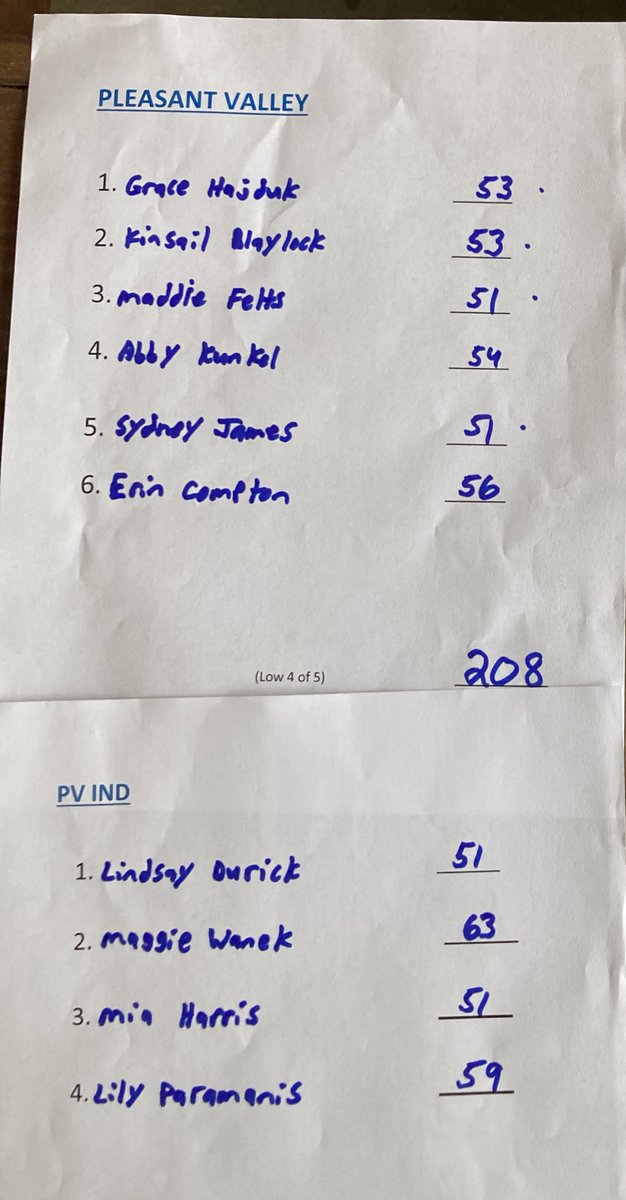 PLEASANT VALLEY
1. Grace Hajduk 53 .
2. Kinsail Blaylock 53 .
3. maddie Felts 51 .
4. Abby Kunkel 54
5. Sydney James 51 .
6. Erin Compton 56
(Low 4 of 5) 208
PV IND
1. Lindsay Durick 51
2. maggie Wanek 63
3. mia Harris 51
4. Lily Paramanis 59